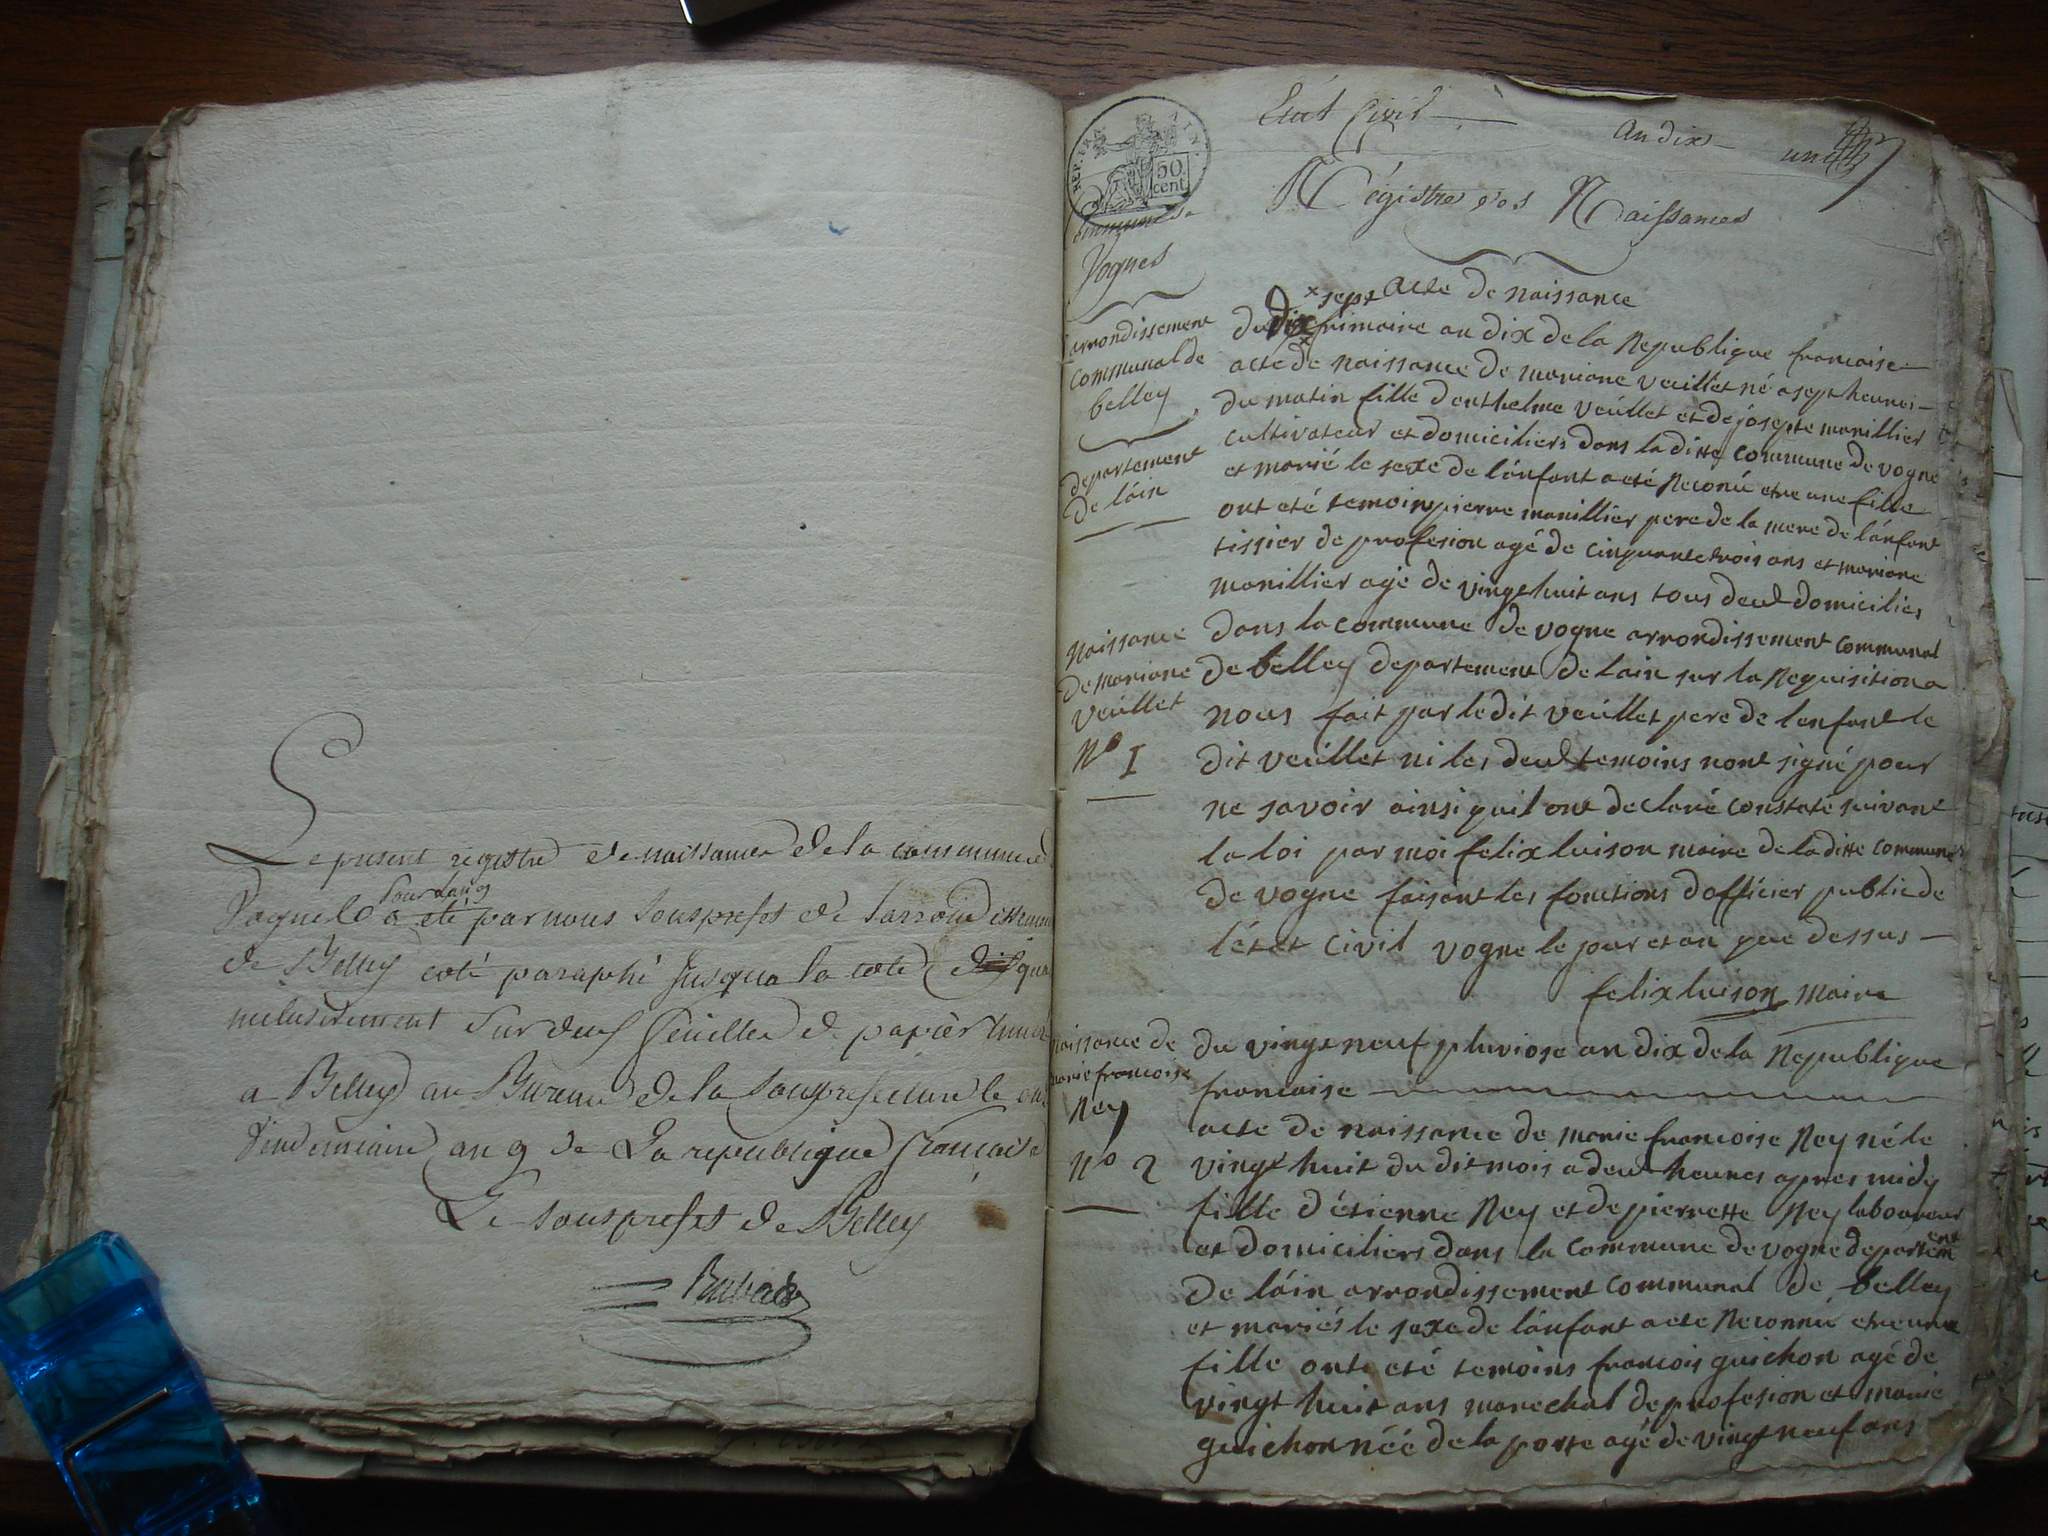 Le present registre de naissance de la commune de
Vogne a été par nous souspréfet de larrondissement
pour lan 9
de Belley coté paraphé jusqua la cote
inclusivement sur deux feuilles de papier timbré
a Belley au Bureau de la souspréfecture le
Vindemiaire an 9 de La republique française
Le souspréfet de Belley
REP. FRA
50
cent
Etat Civil
an dix
un
Régistre des Naissances
commune de
Vognes
arrondissement
communal de
belley
departement
de láin
Naissance
de mariane
veüillet
N° 1
acte de naissance
sept
du dix frimaire an dix de la Republique francaise
acte de naissance de mariane veüillet né a sept heures
du matin fille denthelme veüillet et de josepte manillier
cultivateur et domiciliers dans la ditte commune de vogne
et marié le sexe de lánfant a eté Reconu etre une fille
ont eté temoins pierre manillier pere de la mere de lánfant
tissier de profesion agé de cinquante trois ans et mariane
manillier agé de vingt huit ans tous deux domiciliés
dans la commune de vogne arrondissement communal
de belley departement de lain sur la Requisition a
nous fait par ledit veüillet pere de lenfant le
dit veüillet ni les deux temoins nont signé pour
ne savoir ainsi quil ont declaré constaté suivant
la loi par moi felix luison maire de laditte commune
de vogne faisant les fonctions dofficier public de
létat civil vogne le jour et an que dessus
felix luison maire
naissance de
marie francoise
Ney
N° 2
du vingt neuf pluviose an dix de la Republique
francaise
acte de naissance de marie francoise Ney né le
vingt huit du dit mois a deux heures apres midy
fille détienne Ney et de pierrette Ney laboureur
et domiciliers dans la commune de vogne departement
de láin arrondissement communal de belley
et mariés le sexe de lánfant a eté Reconnú etre une
fille ont eté temoins francois guichon agé de
vingt huit ans marechal de profesion et marie
guichon née de la porte agé de vingt neuf ans